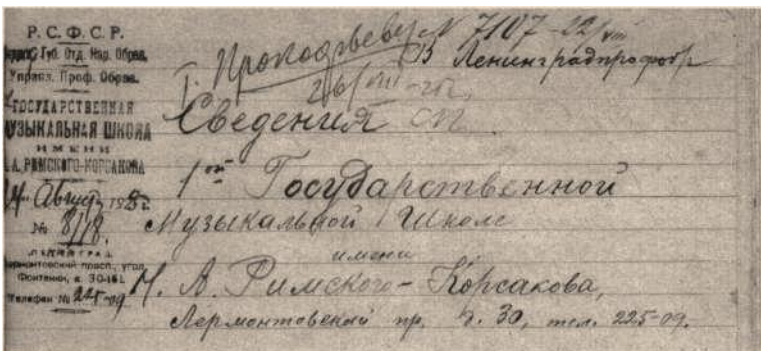 Р. С. Ф. С. Р.
Губ. Отд. Нар. Образ.
Управл. Проф. Образ.
ГОСУДАРСТВЕННАЯ
МУЗЫКАЛЬНАЯ ШКОЛА
ИМЕНИ
А. РИМСКОГО-КОРСАКОВА
Август 192
№ 8/18.
ЛЕНИНГРАД
Лермонтовский просп., угол
Фонтанки, д. 30
Телефон № 225-09
Т. Прокофьеву № 7107-22/VIII
В Ленинградпрофобр
26/VIII-25г.
Сведения
1ой Государственной
Музыкальной Школе
имени
Н. А. Римского-Корсакова,
Лермонтовский пр. д. 30, тел. 225-09.